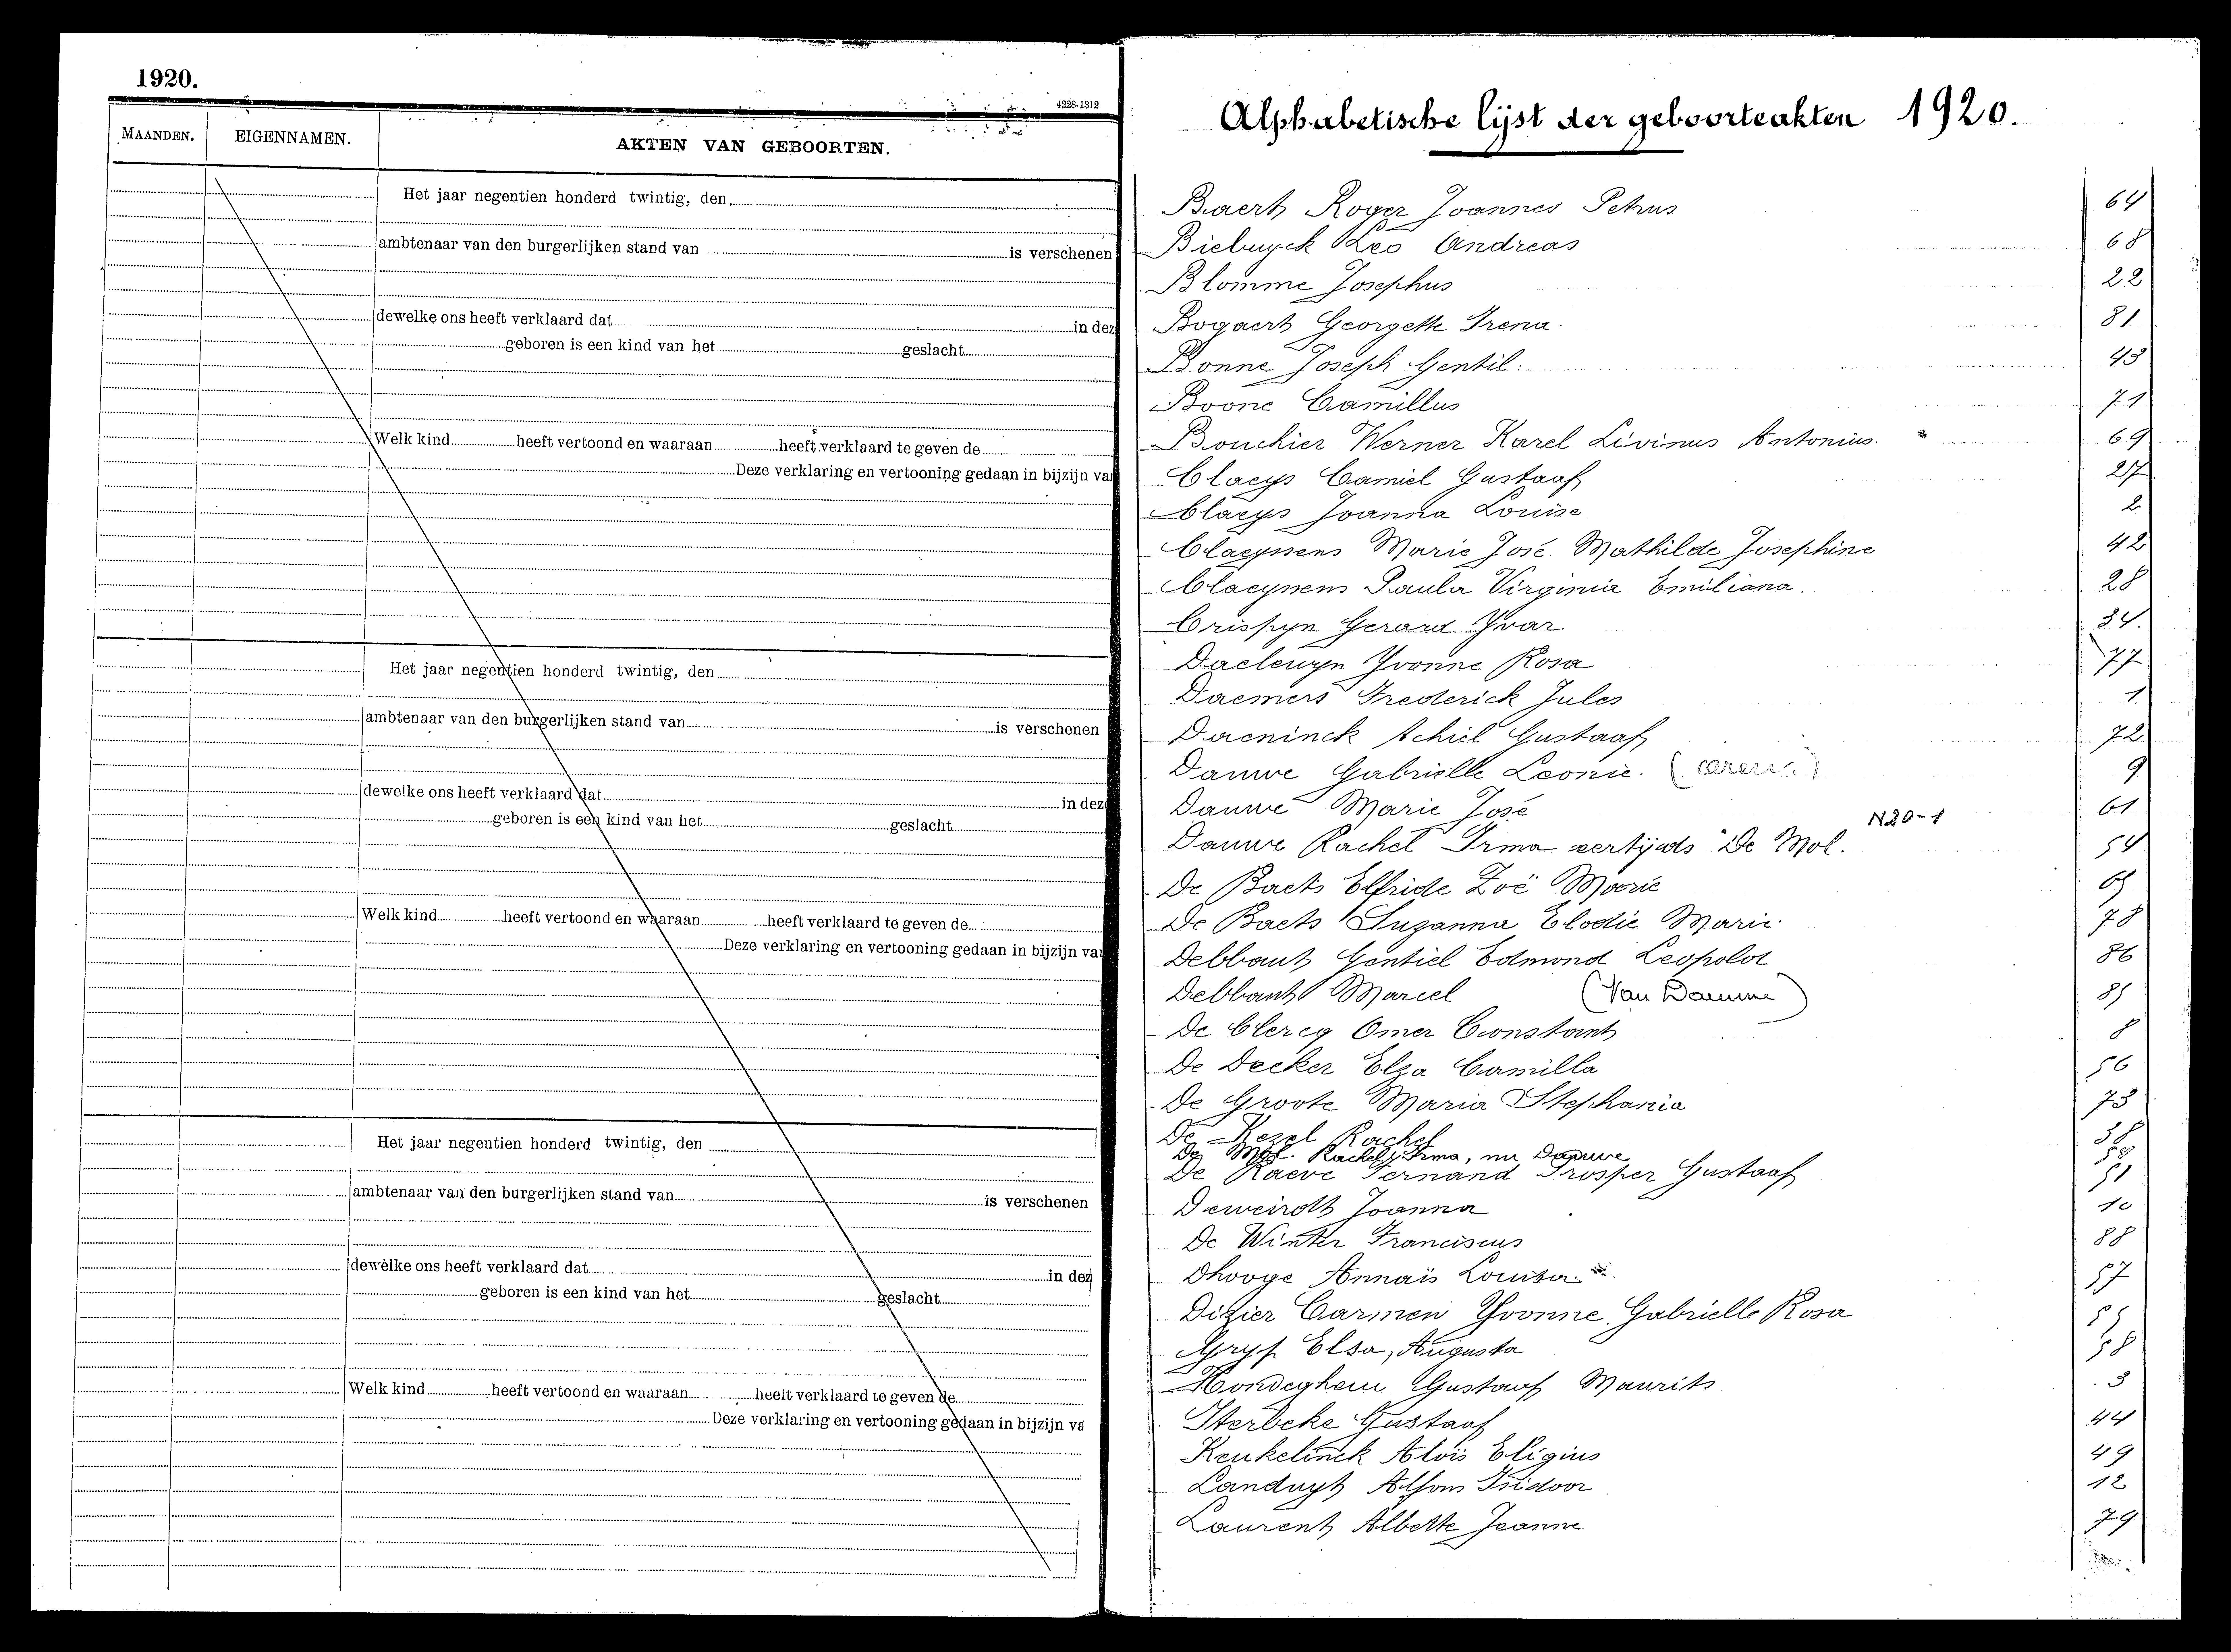 1920.
4228-1312
MAANDEN. EIGENNAMEN. AKTEN VAN GEBOORTEN.
Het jaar negentien honderd twintig, den
ambtenaar van den burgerlijken stand van is verschenen
dewelke ons heeft verklaard dat in dez
geboren is een kind van het geslacht
Welk kind heeft vertoond en waaraan heeft verklaard te geven de
Deze verklaring en vertooning gedaan in bijzijn va
Het jaar negentien honderd twintig, den
ambtenaar van den burgerlijken stand van is verschenen
dewelke ons heeft verklaard dat in dez
geboren is een kind van het geslacht
Welk kind heeft vertoond en waaraan heeft verklaard te geven de
Deze verklaring en vertooning gedaan in bijzijn va
Het jaar negentien honderd twintig, den
ambtenaar van den burgerlijken stand van is verschenen
dewelke ons heeft verklaard dat in dez
geboren is een kind van het geslacht
Welk kind heeft vertoond en waaraan heeft verklaard te geven de
Deze verklaring en vertooning gedaan in bijzijn va
Alphabetische lijst der geboorteakten 1920.
Baert Roger Joannes Petrus 64
Biebuyck Leo Andreas 68
Blomme Josephus 22
Bogaert Georgette Irena. 81
Bonne Joseph Gentil. 43
Boone Camillus 71
Bouchier Werner Karel Livinus Antonius. 69
Claeys Camiel Gustaaf 27
Claeys Joanna Louise 2
Claeyssens Marie José Mathilde Josephine 42
Claeyssens Paula Virginia Emiliana. 28
Crispyn Gerard Yvar 34.
Dacleuyn Yvonne Rosa 77
Daemers Frederick Jules 1
Daeninck Achiel Gustaaf 72
Dauwe Gabrielle Leonie. 9
Dauwe Marie José 61
N20-1
Dauwe Rachel Irma eertijds De Mol. 54
De Baets Elfride Zoë Marie
De Baets Suzanna Elodie Marie. 78
Debbaut Gentiel Edmond Leopold 86
Debbaut Marcel (Van Damme) 85
De Clercq Omer Constant 8
De Decker Elza Camilla 56
De Groote Maria Stephania 73
De Kezel Rachel
De Mol. Rachel, Irma, nu Dauwe
De Raeve Fernand Prosper Gustaaf 51
Deweirdt Joanna 10
De Winter Franciscus 88
Dhooge Annaïs Louisa. 57
Dizier Carmen Yvonne Gabrielle Rosa 55
Gryp Elsa, Augusta 58
Hondeghem Gustaaf Maurits 3
Iterbeke Gustaaf 44
Keukelinck Aloïs Eligius 49
Landuyt Alfons Isidoor 12
Laurent Alberte Jeanne 79